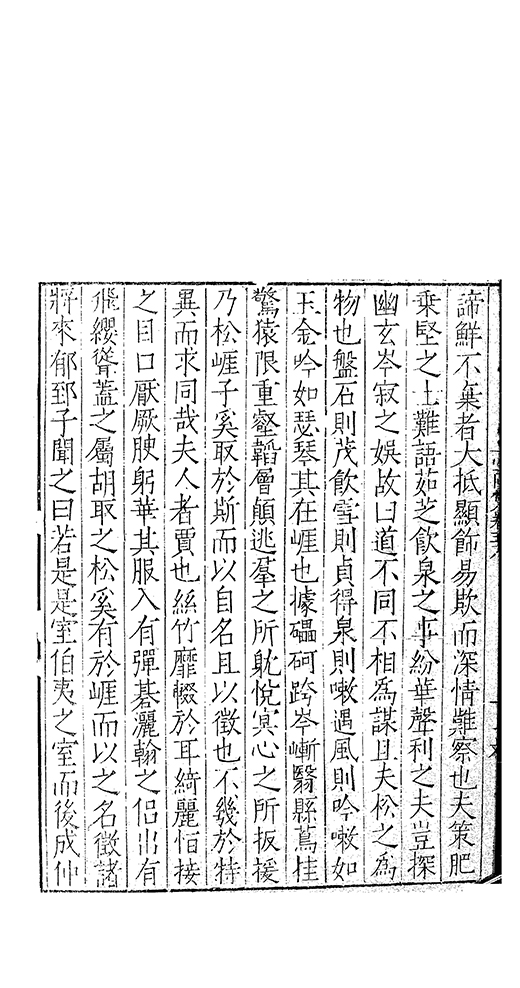 諦鮮不棄者大抵顯飾易欺而深情難察也夫策肥
乗堅之士難語茹芝飲泉之事紛華聲利之夫豈探
幽玄岑寂之娛故曰道不同不相為謀且夫松之為
物也盤石則茂飲雪則貞得泉則嗽遇風則吟嗽如
玉金吟如瑟琴其在崕也據礧砢跨岑嶄翳縣蔦挂
驚猿限重壑韜層顛逃羣之所躭恱㝠心之所扳援
乃松崕子奚取於斯而以自名且以徵也不幾於特
異而求同哉夫人者賈也絲竹靡輟於耳綺麗恒接
之目口厭厥腴躬華其服入有彈碁灑翰之侣出有
飛纓聳蓋之屬胡取之松奚有於崕而以之名徵諸
將來郁郅子聞之曰若是是室伯夷之室而後成仲